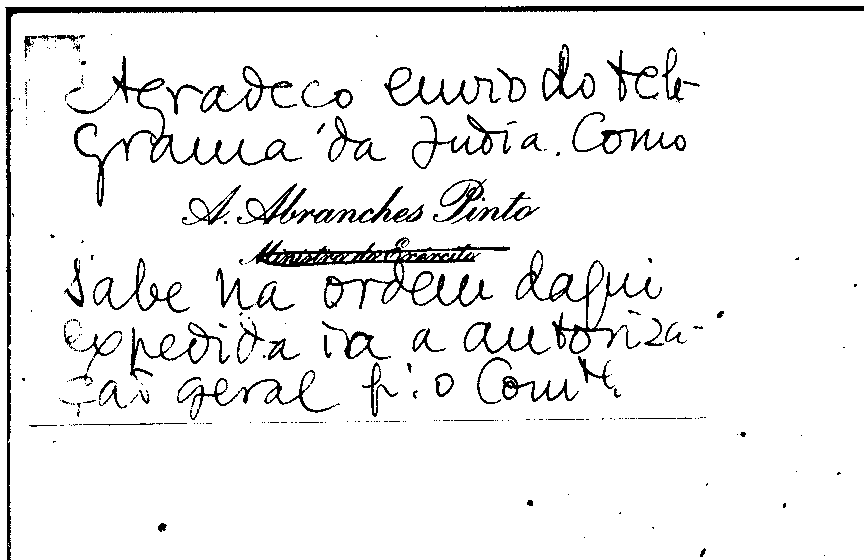 Agradeço envio do tele-
grama da Índia. Como
A. Abranches Pinto
Ministro do Exército
sabe na ordem daqui
expedida ia a autoriza-
ção geral p.ª o Com.te.